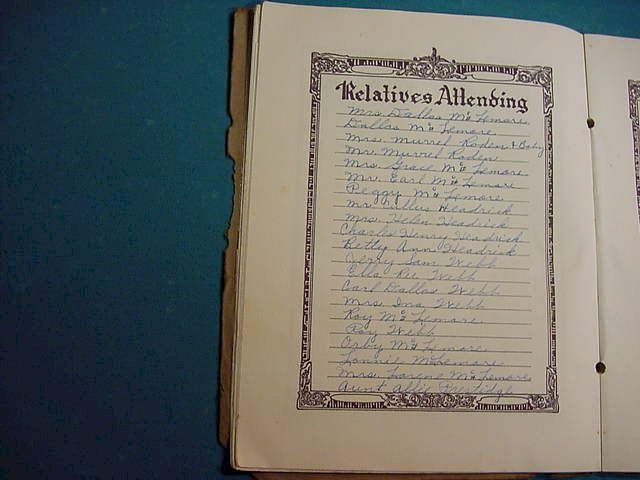 Relatives Attending
Mrs Dallas McLemore
Dallas McLemore
Mrs. Murrel Roden & Baby
Mr. Murrel Roden
Mrs. Grace McLemore
Mr. Earl McLemore
Peggy McLemore
Mr. Headrick
Mrs. Helen Headrick
Charles Henry Headrick
Betty Ann Headrick
Jerry Sam Webb
Ella Ree Webb
Carl Dallas Webb
Mrs Ina Webb
Roy McLemore
Roy Webb
Orby McLemore
Lonnie McLemore
Mrs. Lorene McLemore
Aunt Allie